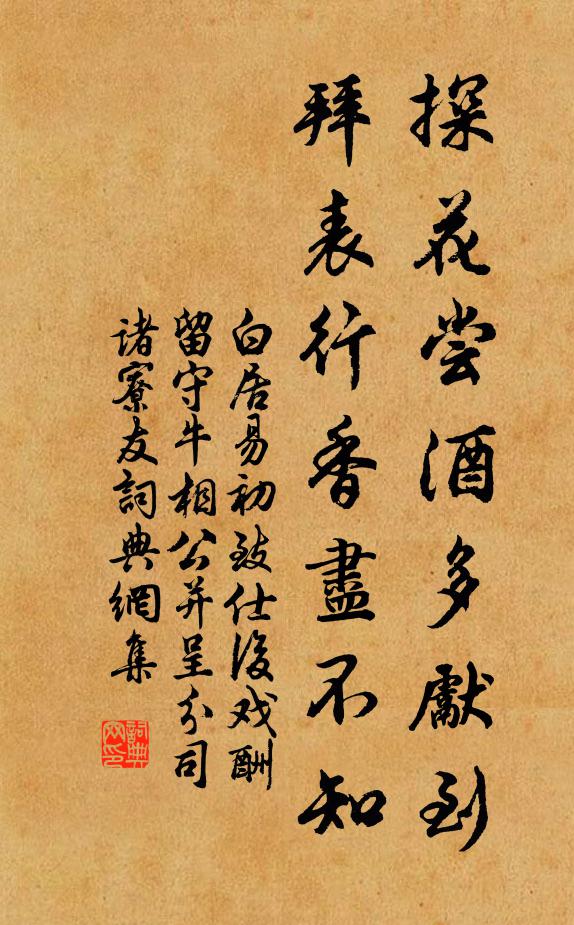 探花尝酒多獻到
拜表行香盡不知
白居易初致仕後戏酬
留守牛相公并呈分司
諸寮友詞典網集
詞典
网印